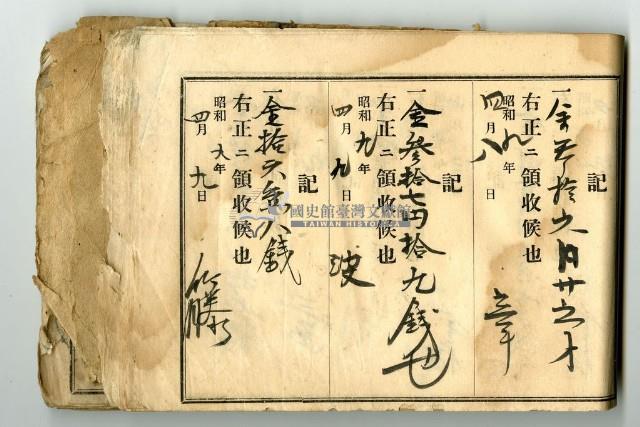 記
一金
右正ニ領收候也
昭和九年
四月八日
記
一金參拾七円拾九銭也
右正ニ領收候也
昭和九年
四月九日
記
一金拾六 八銭
右正ニ領收候也
昭和九年
四月九日
國史館臺灣文獻館
TAIWAN HISTORICA